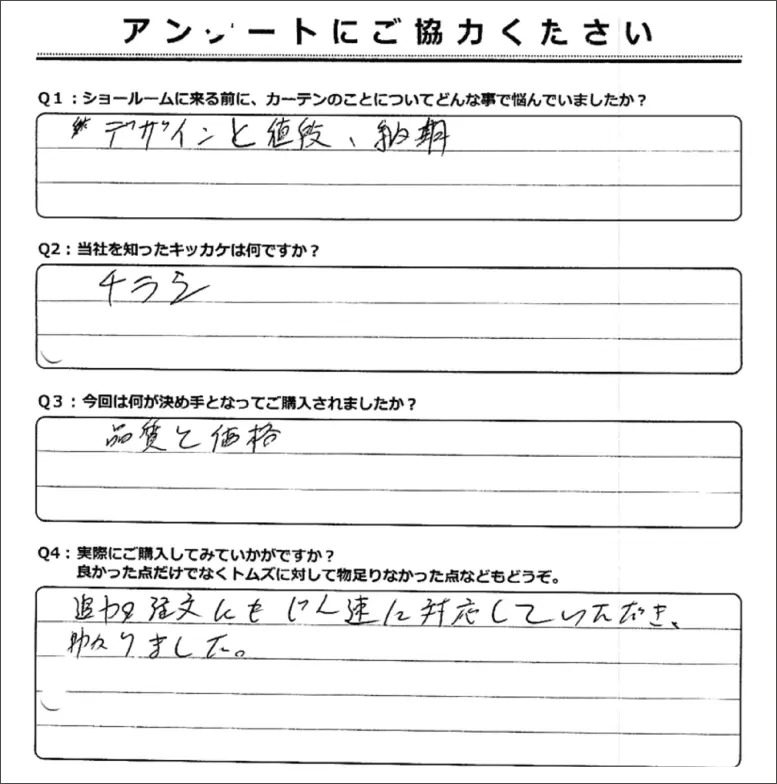 アンケートにご協力ください
Q1：ショールームに来る前に、カーテンのことについてどんな事で悩んでいましたか？
デザインと値段、納期
Q2：当社を知ったキッカケは何ですか？
チラシ
Q3：今回は何が決め手となってご購入されましたか？
品質と価格
Q4：実際にご購入してみていかがですか？
良かった点だけでなくトムズに対して物足りなかった点などもどうぞ。
追加注文にもじん速に対応していただき、
助かりました。